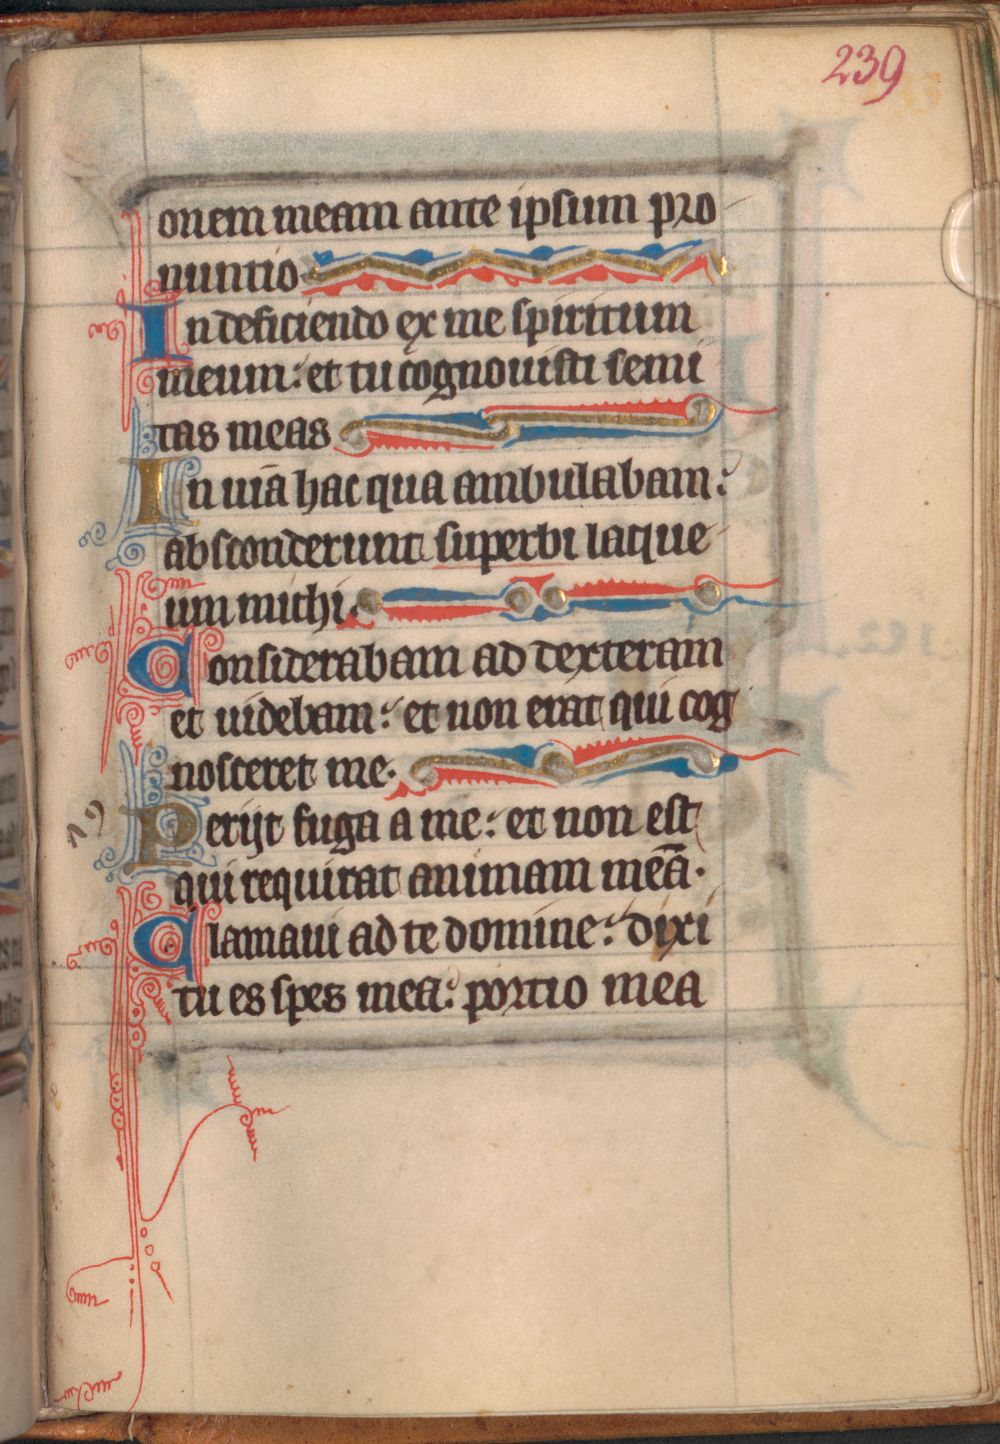 239
onem meam ante ipsum pro
nuntio
In deficiendo ex me spiritum
meum: et tu cognouisti semi
tas meas
In uiā hac qua ambulabam:
absconderunt superbi laque
um michi.
Considerabam ad dexteram
et uidebam: et non erat qui cog
nosceret me.
Perijt fuga a me: et non est
qui requirat animam meā.
Clamaui ad te domine: dixi
tu es spes mea: portio mea